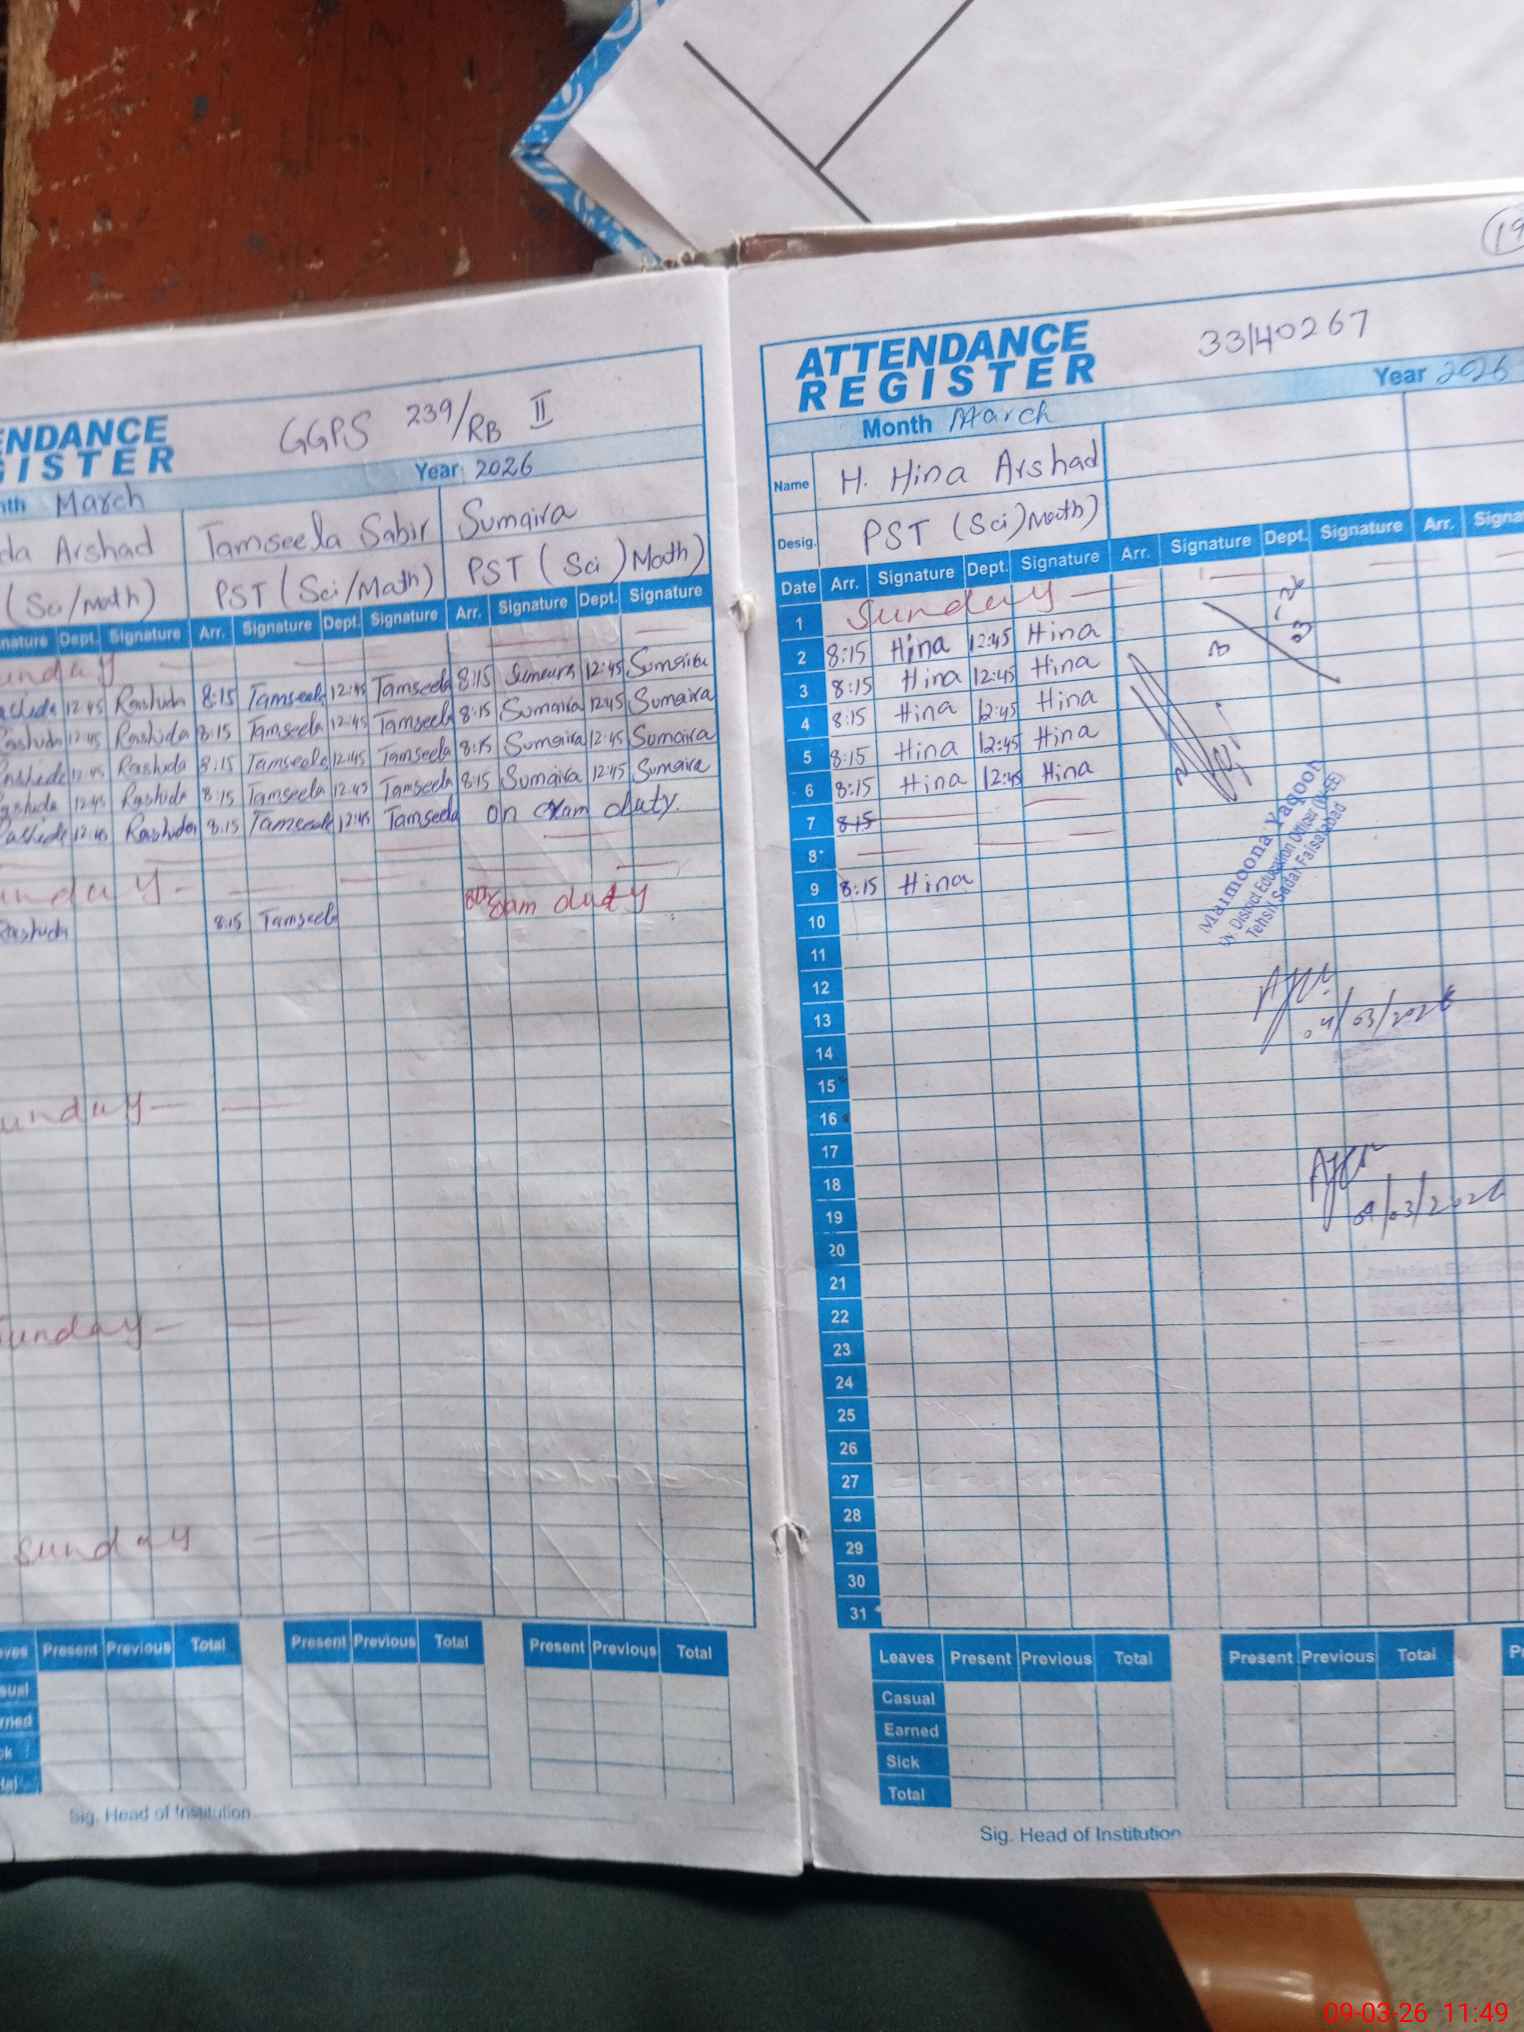 19
ENDANCE
GISTER
GGPS 239/RB II
nth March Year 2026
da Arshad Tamseela Sabir Sumaira
(Sci/Math) PST (Sci/Math) PST (Sci) Math)
nature Dept. Signature Arr. Signature Dept. Signature Arr. Signature Dept. Signature
unday
12:45 Rashida 8:15 Tamseela 12:45 Tamseela 8:15 Sumaira 12:45 Sumaira
Rashida 12:45 Rashida 8:15 Tamseela 12:45 Tamseela 8:15 Sumaira 12:45 Sumaira
Rashida 12:45 Rashida 8:15 Tamseela 12:45 Tamseela 8:15 Sumaira 12:45 Sumaira
ashida 12:45 Rashida 8:15 Tamseela 12:45 Tamseela 8:15 Sumaira 12:45 Sumaira
12:45 Rashida 8:15 Tamseela 12:45 Tamseela on exam duty.
unday
Rashida 8:15 Tamseela exam duty
unday
unday
Sunday
ves Present Previous Total Present Previous Total Present Previous Total
sual
rned
k
tal
Sig. Head of Institution
ATTENDANCE
REGISTER
33140267
Month March Year 2026
Name H. Hina Arshad
Desig. PST (Sci) Math)
Date Arr. Signature Dept. Signature Arr. Signature Dept. Signature Arr. Signa
1 Sunday
2 8:15 Hina 12:45 Hina
3 8:15 Hina 12:45 Hina
4 8:15 Hina 12:45 Hina
5 8:15 Hina 12:45 Hina
6 8:15 Hina 12:45 Hina
7 8:15
8
9 8:15 Hina
10
11
12
13
14
15
16
17
18
19
20
21
22
23
24
25
26
27
28
29
30
31
Maimoona Yaqoob
Dy. District Education Officer (W-EE)
Tehsil Sadar Faisalabad
04/03/2026
09/03/2026
Leaves Present Previous Total Present Previous Total P
Casual
Earned
Sick
Total
Sig. Head of Institution
09-03-26 11:49